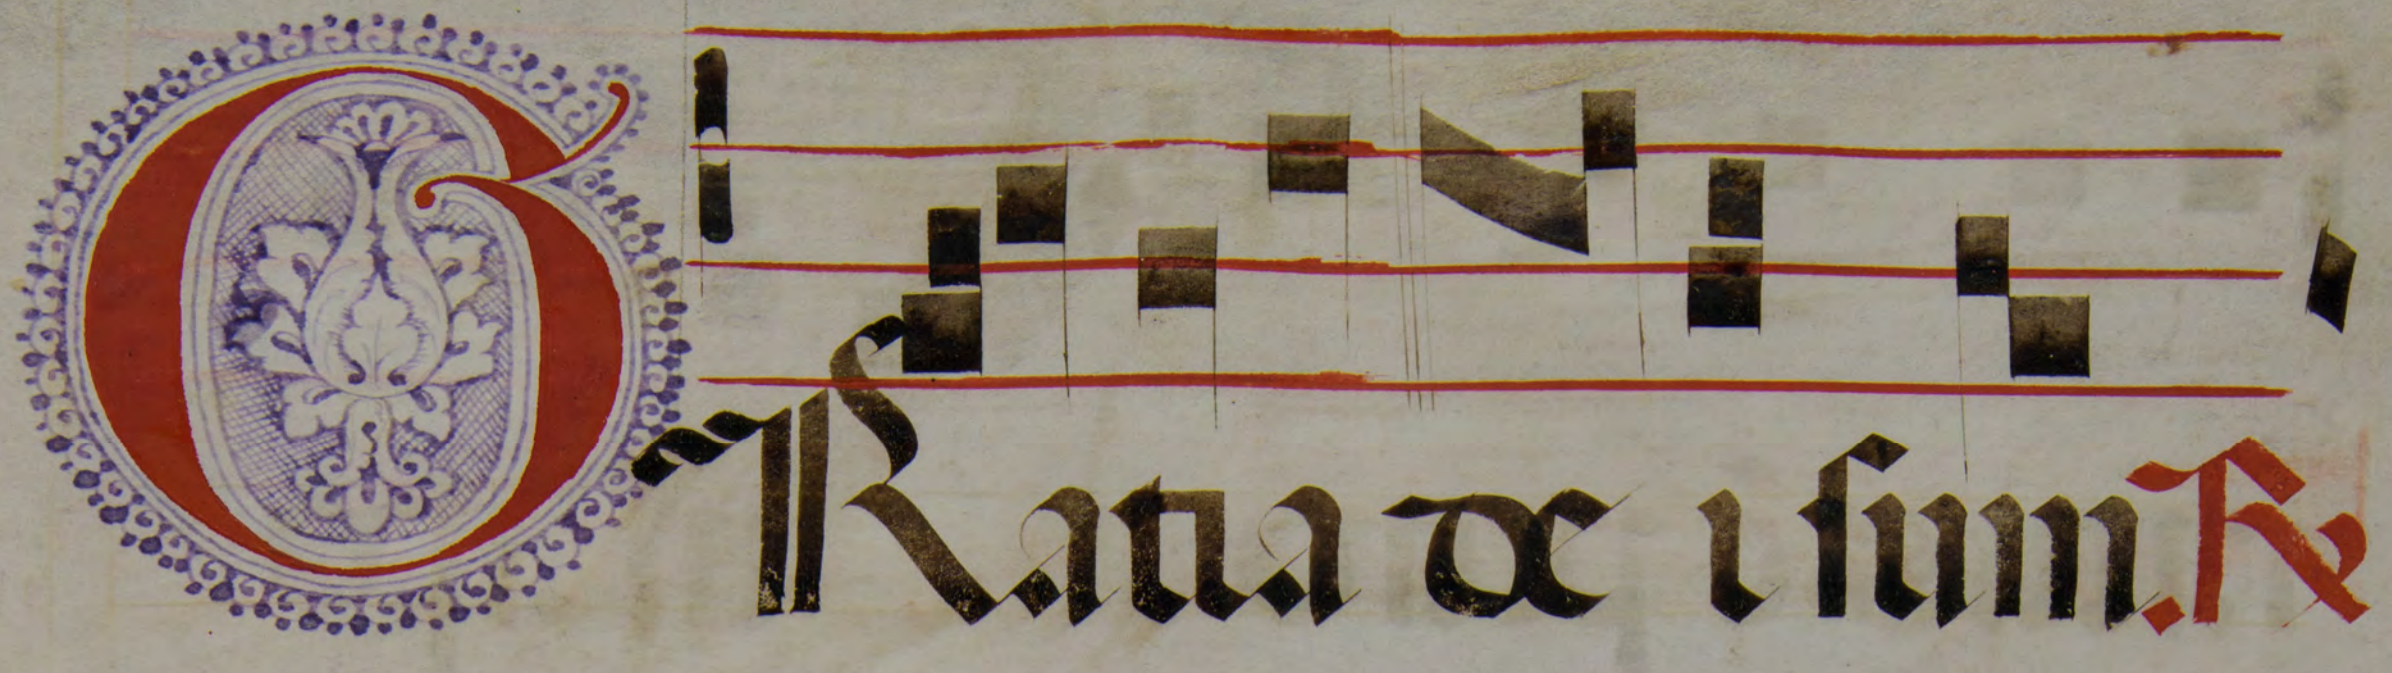 GRatia de i sum. ℟